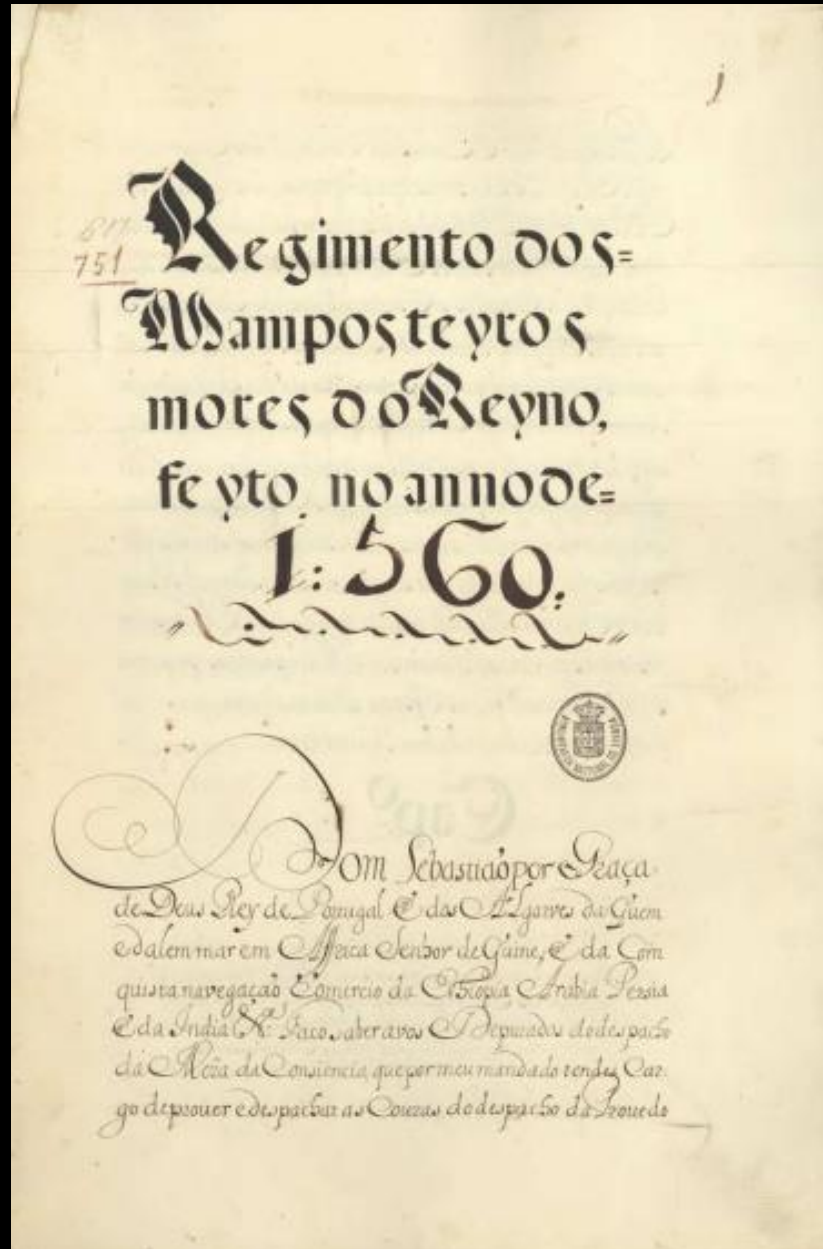 1
617
751
Regimento dos=
Mamposteyros
mores do Reyno,
feyto no anno de=
1:560.
BIBLIOTHECA NACIONAL DE LISBOA
Cap.º
Dom Sebastiaõ por Graça
de Deus Rey de Portugal E dos Algarves da Quem
e dalem mar em Affrica Senhor de Guine, E da Com
quista navegaçaõ Comercio da Ethiopia Arabia Persia
E da India &.ª Faco saber a vos Deputados do despacho
da Meza da Consiencia, que por meu mandado tendes Car
go de prover e despachar as Couzas do despacho da Provedo